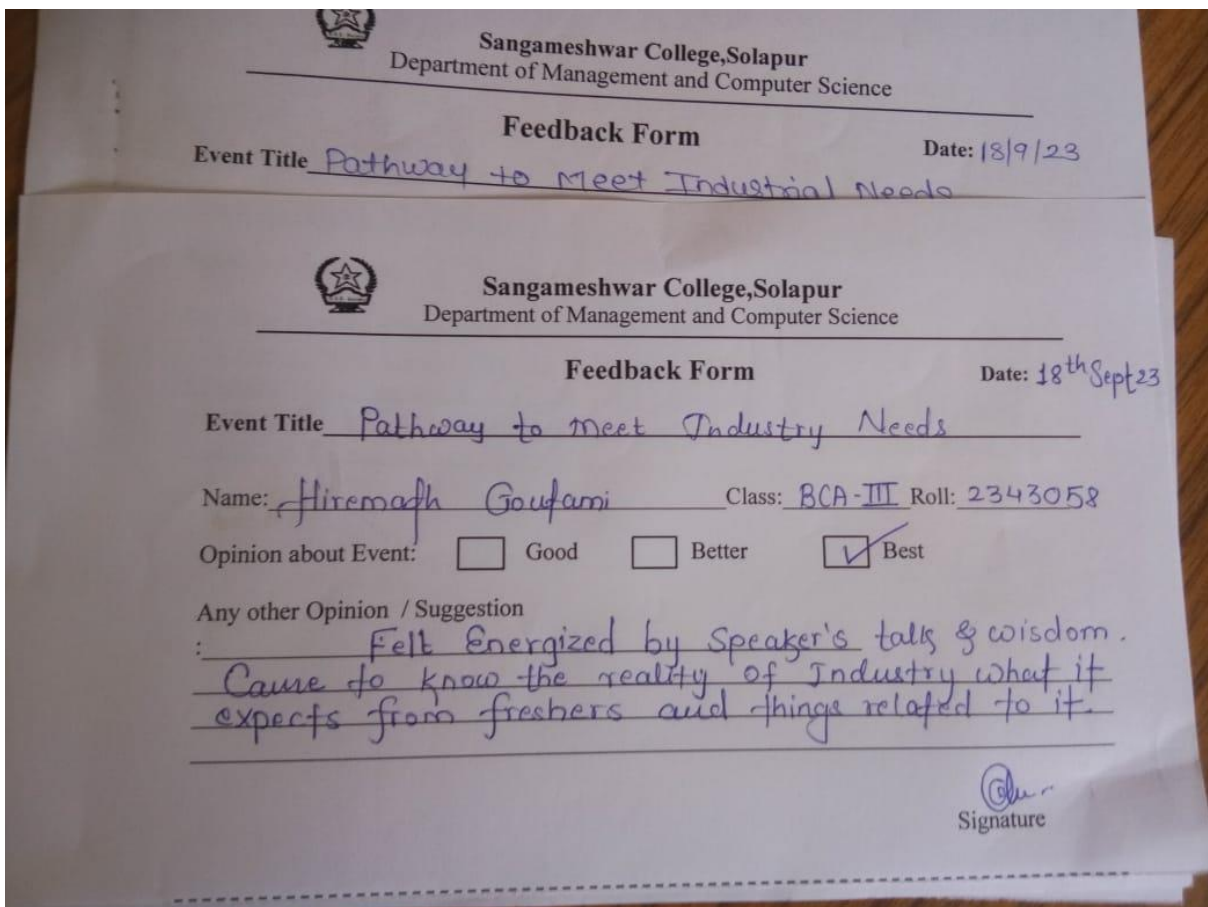 Sangameshwar College,Solapur
Department of Management and Computer Science
Feedback Form
Date: 18/9/23
Event Title Pathway to Meet Industrial Needs
Sangameshwar College,Solapur
Department of Management and Computer Science
Feedback Form
Date: 18th Sept 23
Event Title Pathway to meet Industry Needs
Name: Hiremath Goutami Class: BCA-III Roll: 2343058
Opinion about Event: Good Better Best
Any other Opinion / Suggestion
: Felt Energized by Speaker's talk & wisdom.
Came to know the reality of Industry what it
expects from freshers and things related to it.
Signature